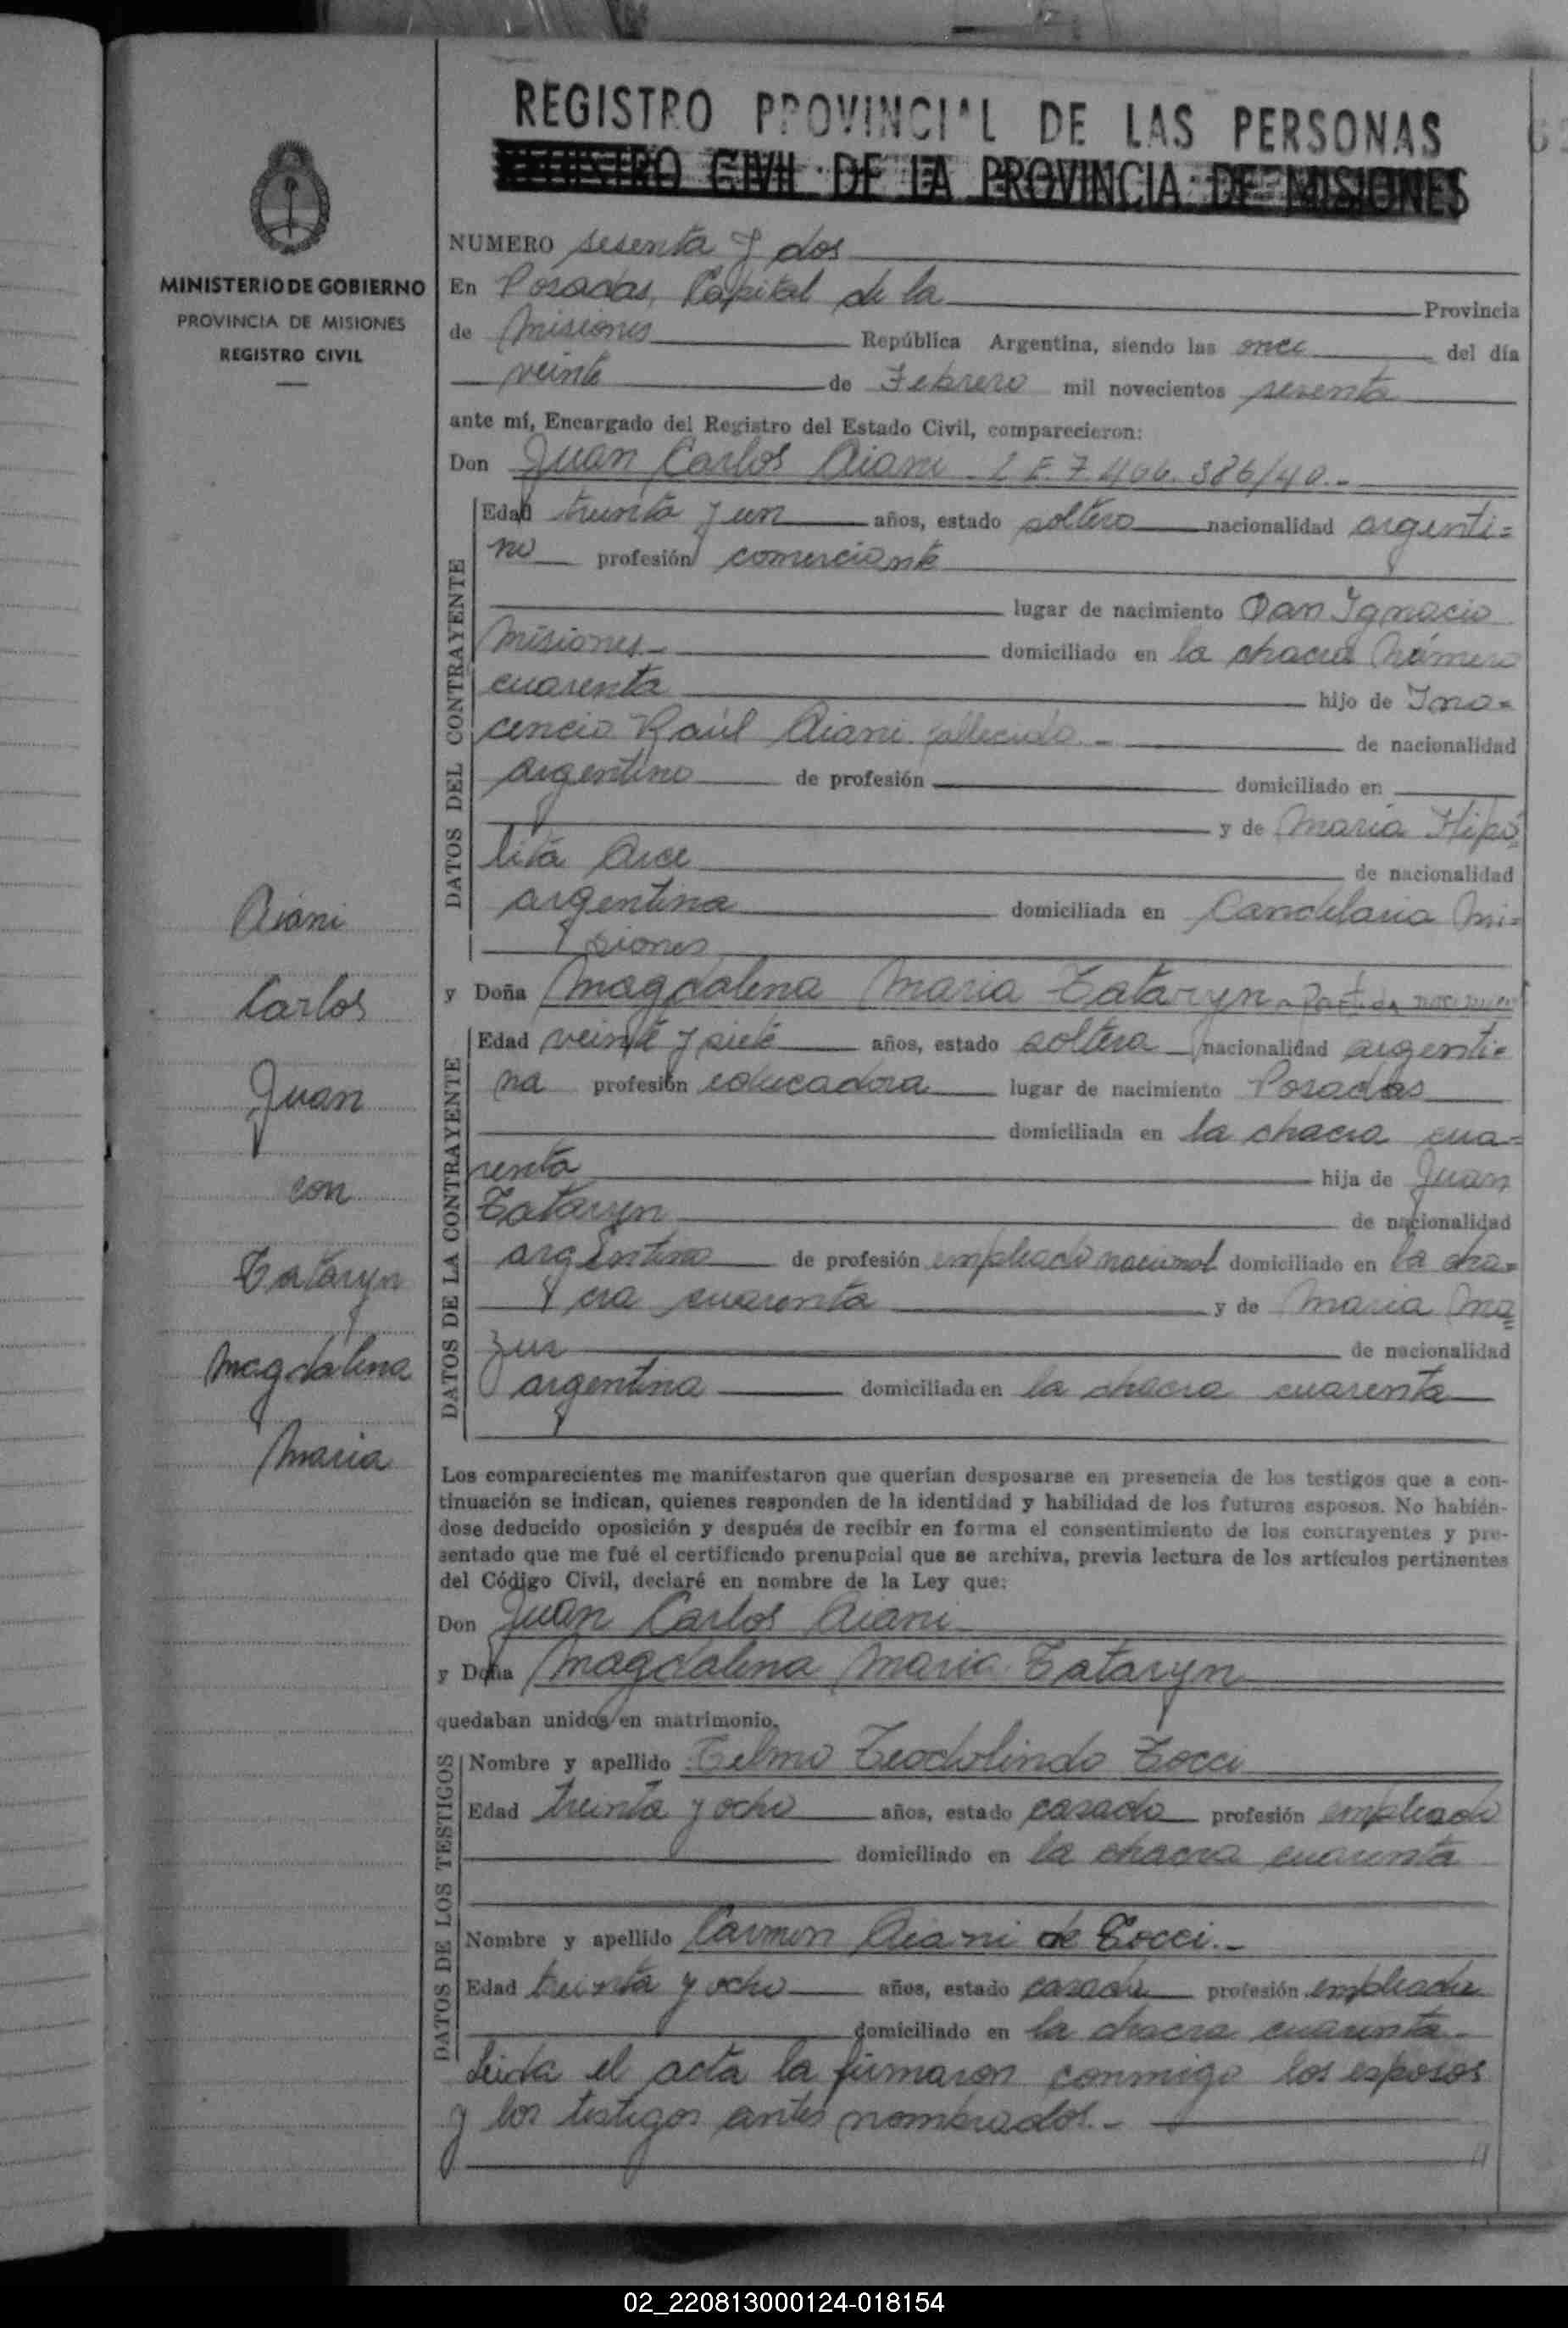 REGISTRO PROVINCIAL DE LAS PERSONAS
REGISTRO CIVIL DE LA PROVINCIA DE MISIONES
MINISTERIO DE GOBIERNO
PROVINCIA DE MISIONES
REGISTRO CIVIL
Aiani
Carlos
Juan
con
Tataryn
Magdalena
Maria
NUMERO sesenta y dos
En Posadas, Capital de la Provincia
de Misiones República Argentina, siendo las once del día
veinte de Febrero mil novecientos setenta
ante mí, Encargado del Registro del Estado Civil, comparecieron:
Don Juan Carlos Aiani L E. 7.466.386/40.-
DATOS DEL CONTRAYENTE
Edad treinta y un años, estado soltero nacionalidad argenti=
no profesión comerciante
lugar de nacimiento San Ignacio
Misiones- domiciliado en la chacra Número
cuarenta hijo de Ino=
cencio Raúl Aiani fallecido.- de nacionalidad
argentino de profesión domiciliado en
y de María Hipó=
lita Arce de nacionalidad
argentina domiciliada en Candelaria Mi=
siones
y Doña Magdalena Maria Tataryn
DATOS DE LA CONTRAYENTE
Edad veinte y siete años, estado soltera nacionalidad argenti=
na profesión educadora lugar de nacimiento Posadas
domiciliada en la chacra cua=
renta hija de Juan
Tataryn de nacionalidad
argentino de profesión empleado nacional domiciliado en la cha=
cra cuarenta y de Maria Ma=
zur de nacionalidad
argentina domiciliada en la chacra cuarenta
Los comparecientes me manifestaron que querían desposarse en presencia de los testigos que a con-
tinuación se indican, quienes responden de la identidad y habilidad de los futuros esposos. No habién-
dose deducido oposición y después de recibir en forma el consentimiento de los contrayentes y pre-
sentado que me fué el certificado prenupcial que se archiva, previa lectura de los artículos pertinentes
del Código Civil, declaré en nombre de la Ley que:
Don Juan Carlos Aiani
y Doña Magdalena Maria Tataryn
quedaban unidos en matrimonio.
DATOS DE LOS TESTIGOS
Nombre y apellido Telmo Teodolindo Tocci
Edad treinta y ocho años, estado casado profesión empleado
domiciliado en la chacra cuarenta
Nombre y apellido Carmen Aiani de Tocci.-
Edad treinta y ocho años, estado casada profesión empleada
domiciliado en la chacra cuarenta-
Leida el acta la firmaron conmigo los esposos
y los testigos antes nombrados.-
02_220813000124-018154